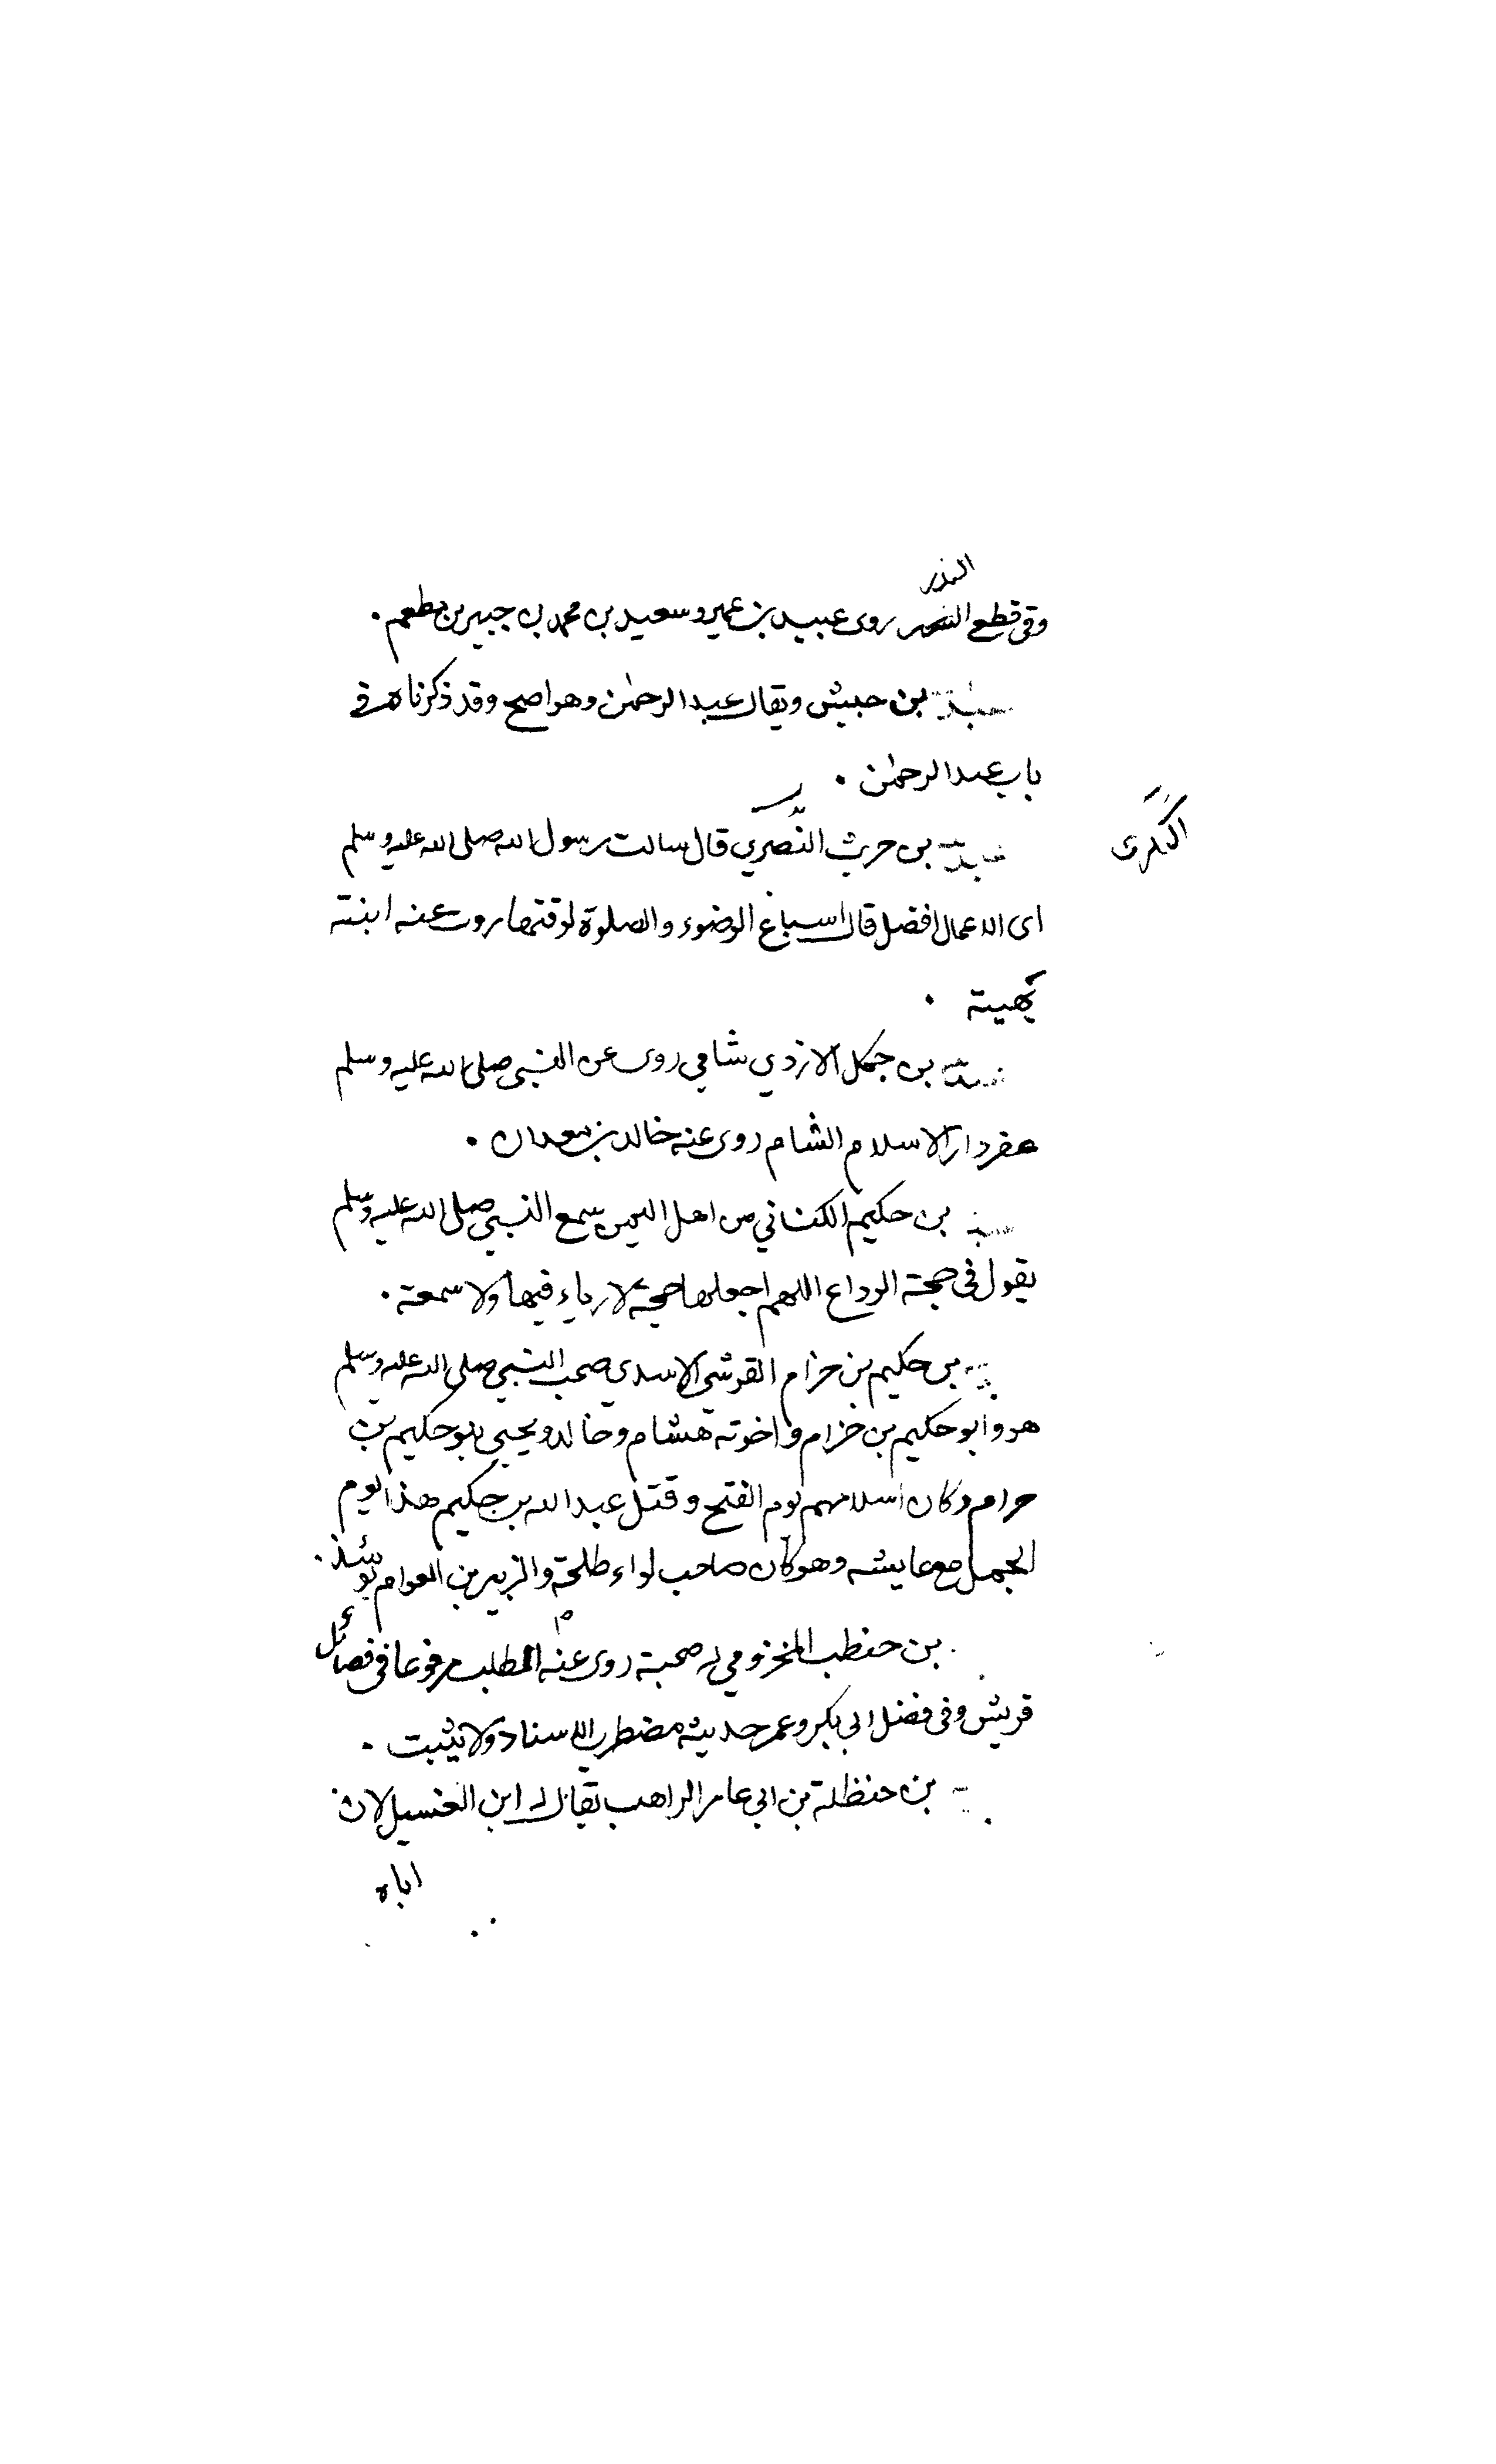 السدر
وفى قطع السدر روى عبيد بن عمير وسعيد بن محمد بن جبير بن مطعم .
بن حبيش ويقال عبد الرحمن وهو اصح وقد ذكرناه فى
باب عبد الرحمن .
البكرى
بن حرث النصري قال سالت رسول الله صلى الله عليه وسلم
اى الاعمال افضل قال اسباغ الوضوء والصلوة لوقتها روت عنه ابنته
بهية .
بن جمل الازدي شامي روى عن النبي صلى الله عليه وسلم
عقر دار الاسلام الشام روى عنه خالد بن معدان .
بن حكيم الكناني من اهل اليمن سمع النبي صلى الله عليه وسلم
يقول فى حجة الوداع اللهم اجعلها حجة لا رياء فيها ولا سمعة .
بن حكيم بن حزام القرشي الاسدي صحب النبي صلى الله عليه وسلم
هو وابو حكيم بن حزام واخوته هشام وخالد ويحيى بنو حكيم بن
حزام وكان اسلامهم يوم الفتح وقتل عبد الله بن حكيم هذا يوم
الجمل مع عايشه وهو كان صاحب لواء طلحة والزبير بن العوام يومئذ .
بن حنطب المخزومي له صحبة روى عنه المطلب مرفوعا فى فضائل
قريش وفى فضل ابي بكر وعمر حديثه مضطرب الاسناد ولا يثبت .
بن حنظلة بن ابي عامر الراهب يقال له ابن الغسيل لان
اباه